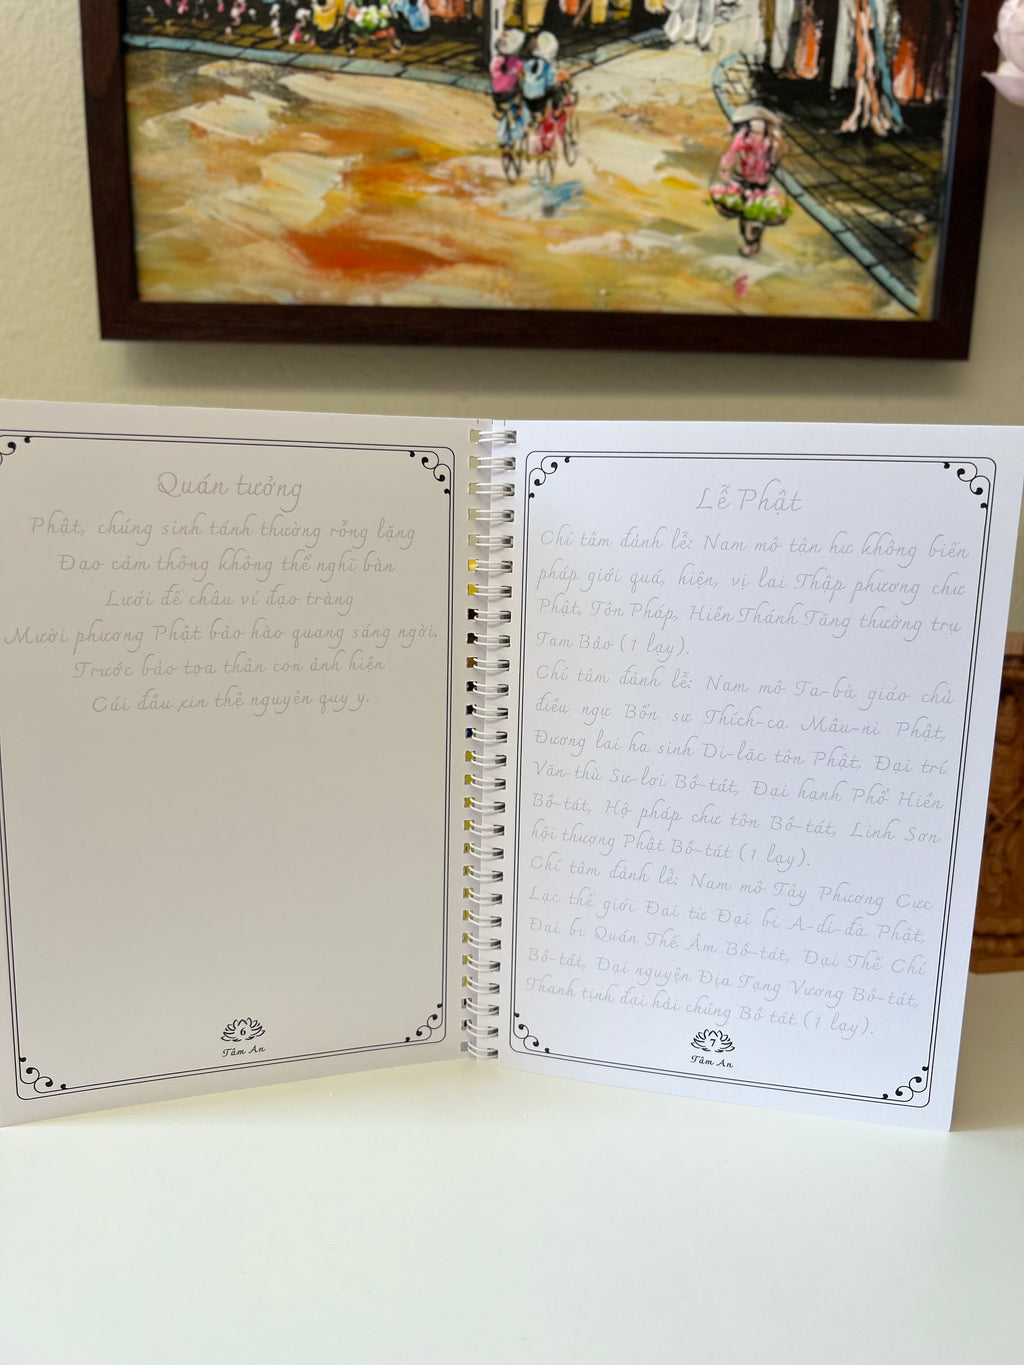 Quán tưởng
Phật, chúng sinh tánh thường rỗng lặng
Đạo cảm thông không thể nghĩ bàn
Lưới đế châu ví đạo tràng
Mười phương Phật bảo hào quang sáng ngời.
Trước bảo tọa thân con ảnh hiện
Cúi đầu xin thệ nguyện quy y.
6
Tâm An
Lễ Phật
Chí tâm đảnh lễ: Nam mô tận hư không biến
pháp giới quá, hiện, vị lai Thập phương chư
Phật, Tôn Pháp, Hiền Thánh Tăng thường trụ
Tam Bảo (1 lạy).
Chí tâm đảnh lễ: Nam mô Ta-bà giáo chủ
điều ngự Bổn sư Thích-ca Mâu-ni Phật,
Đương lai hạ sinh Di-lặc tôn Phật, Đại trí
Văn-thù Sư-lợi Bồ-tát, Đại hạnh Phổ Hiền
Bồ-tát, Hộ pháp chư tôn Bồ-tát, Linh Sơn
hội thượng Phật Bồ-tát (1 lạy).
Chí tâm đảnh lễ: Nam mô Tây Phương Cực
Lạc thế giới Đại từ Đại bi A-di-đà Phật,
Đại bi Quán Thế Âm Bồ-tát, Đại Thế Chí
Bồ-tát, Đại nguyện Địa Tạng Vương Bồ-tát,
Thanh tịnh đại hải chúng Bồ tát (1 lạy).
7
Tâm An